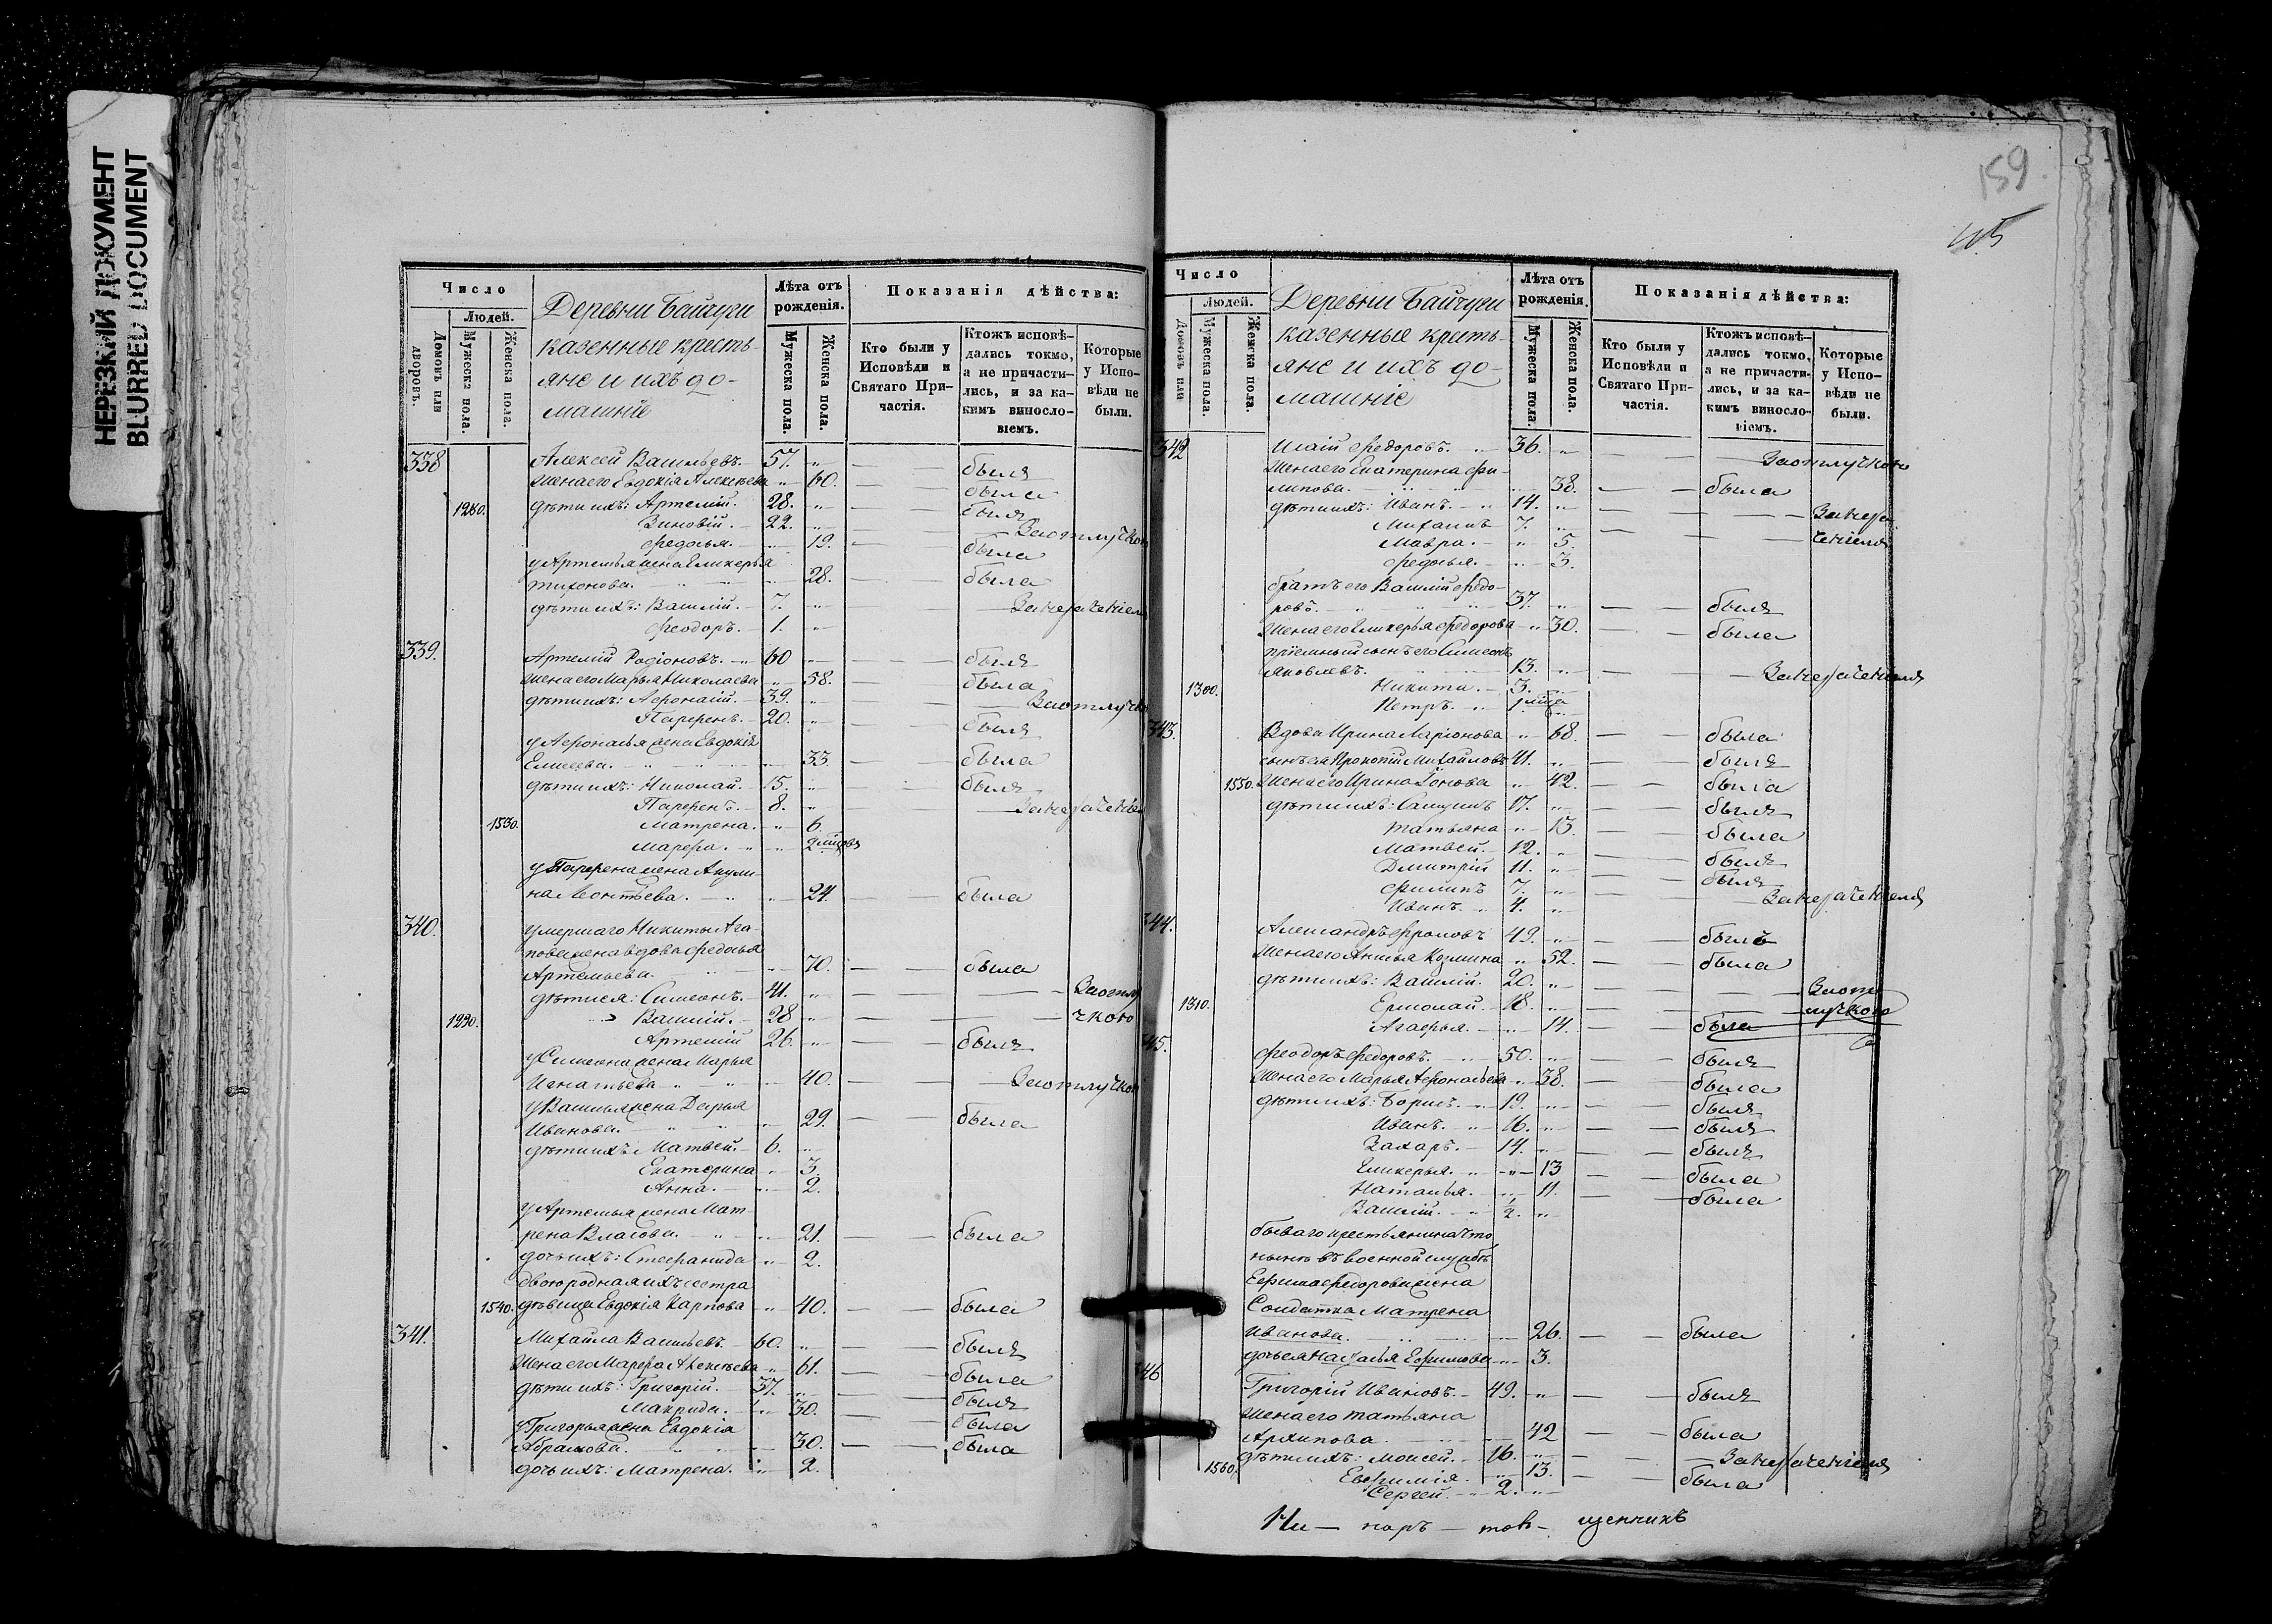 НЕРЕЗКИЙ ДОКУМЕНТ
BLURRED DOCUMENT
Число
Людей.
Домовъ или дворовъ.
Мужеска пола.
Женска пола.
Деревни Байчуги
казенные кресть-
яне и ихъ до-
машніе
Лѣта отъ рожденія.
Мужеска пола.
Женска пола.
Показанія дѣйства:
Кто были у Исповѣди и Святаго При-частія.
Ктожъ исповѣ-дались токмо, а не причасти-лись, и за ка-кимъ винosло-віемъ.
Которые у Испо-вѣди не были.
338 Алексей Васильевъ. 57. былъ
Жена его Евдокія Алексѣева 60. была
1280. дѣти ихъ: Артемій. 28. былъ
Зиновій. 22. За отлучкою
Федосья. 19. была
у Артемья жена Гликерья
Тихонова. 28. была
дѣти ихъ: Василій. 7.
Феодоръ. 1.
339. Артемій Родіоновъ. 60 былъ
Жена его Марья Николаева 58. была
дѣти ихъ: Афонасій. 39. За отлучкою
Парфенъ. 20. былъ
у Афонасья жена Евдокія
Елисеева. 33. была
дѣти ихъ: Николай. 15. былъ
Парфенъ. 8.
1530. Матрена. 6.
Марфа. 2 мѣсяцъ
у Парфена жена Акули-
на Леонтьева. 24. была
340. умершаго Никиты Ага-
пова жена вдова Федосья
Артемьева. 70. была
дѣти ея: Симеонъ. 41. За отлу
1290. Василій. 28 чкою
Артемій 26. былъ
у Симеона жена Марья
Игнатьева 40. За отлучкою
у Василья жена Дарья
Иванова. 29. была
дѣти ихъ: Матвей. 6.
Екатерина 3.
Анна. 2.
у Артемья жена Мат-
рена Власова. 21. была
дочь ихъ: Стефанида 2.
двоюродная ихъ сестра
1540. дѣвица Евдокія Карпова 40. была
341. Михайла Васильевъ. 60. былъ
Жена его Марфа Алексѣева 61. была
дѣти ихъ: Григорій. 37. былъ
Макрида. 30. была
у Григорья жена Евдокія
Абрамова. 30. была
дочь ихъ: Матрена. 2.
159.
Число
Людей.
Домовъ или
Мужеска пола.
Женска пола.
Деревни Байчуги
казенные кресть-
яне и ихъ до-
машніе
Лѣта отъ рожденія.
Мужеска пола.
Женска пола.
Показанія дѣйства:
Кто были у Исповѣди и Святаго При-частія.
Ктожъ исповѣ-дались токмо, а не причасти-лись, и за ка-кимъ винosло-віемъ.
Которые у Испо-вѣди не были.
342 Федоровъ. 36. За отлучкою
Жена его Екатерина Фи-
липова. 38. была
дѣти ихъ: Иванъ. 14.
Михаилъ 7.
Мавра. 5.
Федосья. 3.
братъ его Василій Федо-
ровъ. 37. былъ
Жена его Гликерья Федорова 30. была
пріемный сынъ его Симеонъ
Яковлевъ. 13.
1300. Никита. 3.
Петръ. 1
343. Вдова Ирина Ларіонова 68. была
сынъ ея Прокопій Михайловъ 41. былъ
1550. Жена его Ирина Іонова 42. была
дѣти ихъ: Самуилъ 17. былъ
Татьяна 13. была
Матвей. 12. былъ
Дмитрій 11. былъ
Филипъ 7.
Иванъ. 4.
344. Александръ Фроловъ 49. былъ
Жена его Анисья Козмина 52. была
дѣти ихъ: Василій. 20. За отл
1310. Ермолай. 18. лучкою
Агафья. 14. была
345. Феодоръ Федоровъ. 50. былъ
Жена его Марья Афонасьева 38. была
дѣти ихъ: Борисъ. 19. былъ
Иванъ. 16. былъ
Захаръ. 14. былъ
Гликерья. 13 была
Наталья. 11. была
Василій. 2.
бывшаго крестьянина что
нынѣ въ военной службѣ
Ефима Федорова жена
Солдатка Матрена
Иванова. 26. была
дочь ея Наталья Ефимова 3.
346 Григорій Ивановъ. 49. былъ
Жена его Татьяна
Архипова. 42 была
дѣти ихъ: Моисей. 16.
1560. Евфимія. 13. была
Сергей. 2.